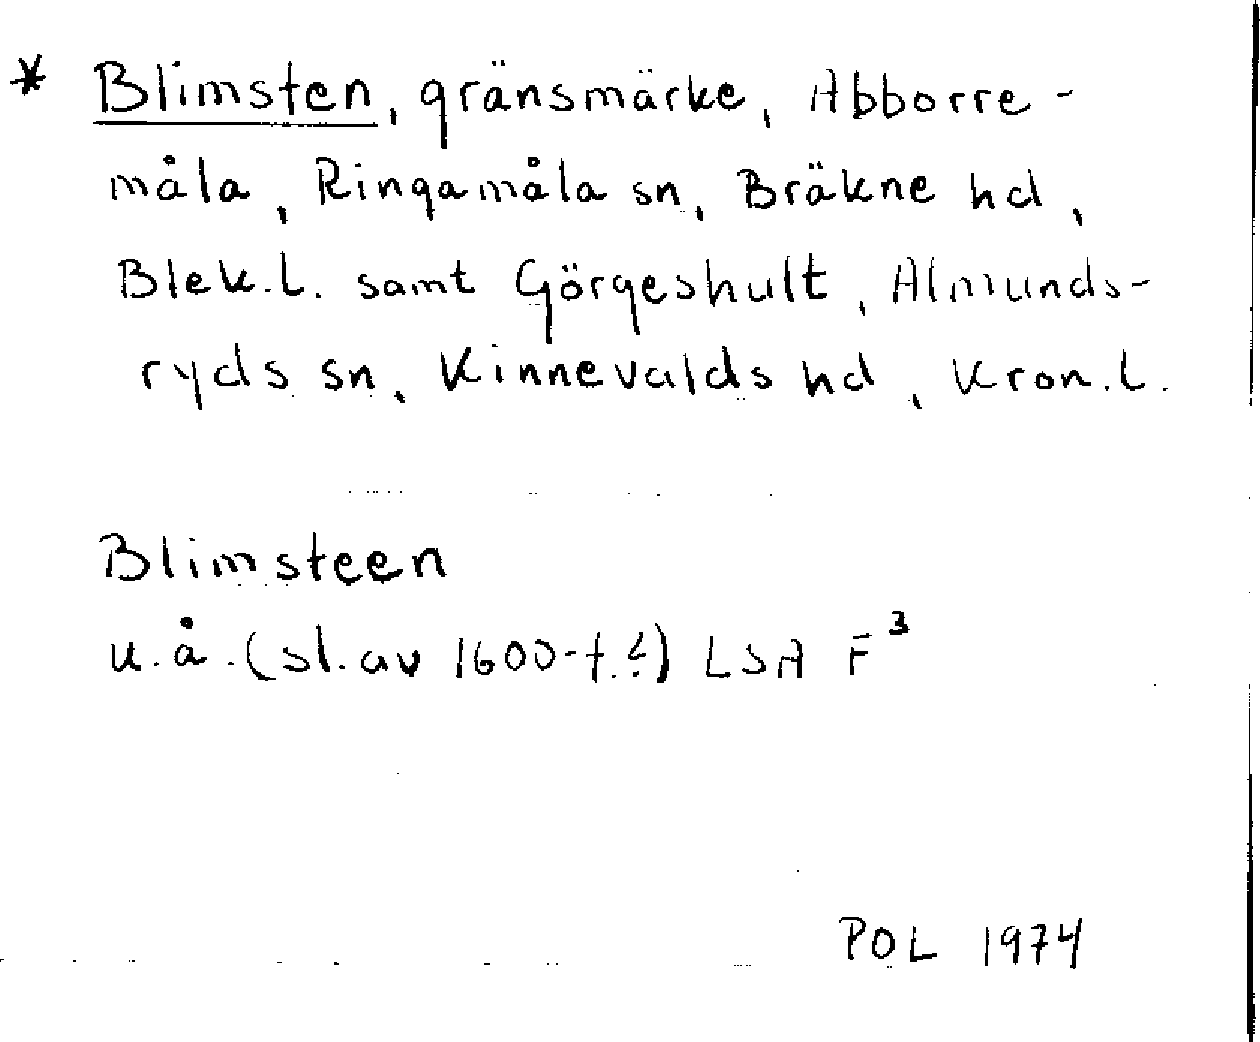 * Blimsten, gränsmärke, Abborre-
måla, Ringamåla sn, Bräkne hd,
Blek.l. samt Görgeshult, Almunds-
ryds sn, Kinnevalds hd, Kron.l.
Blimsteen
u.å. (sl. av 1600-t.?) LSA F³
POL 1974